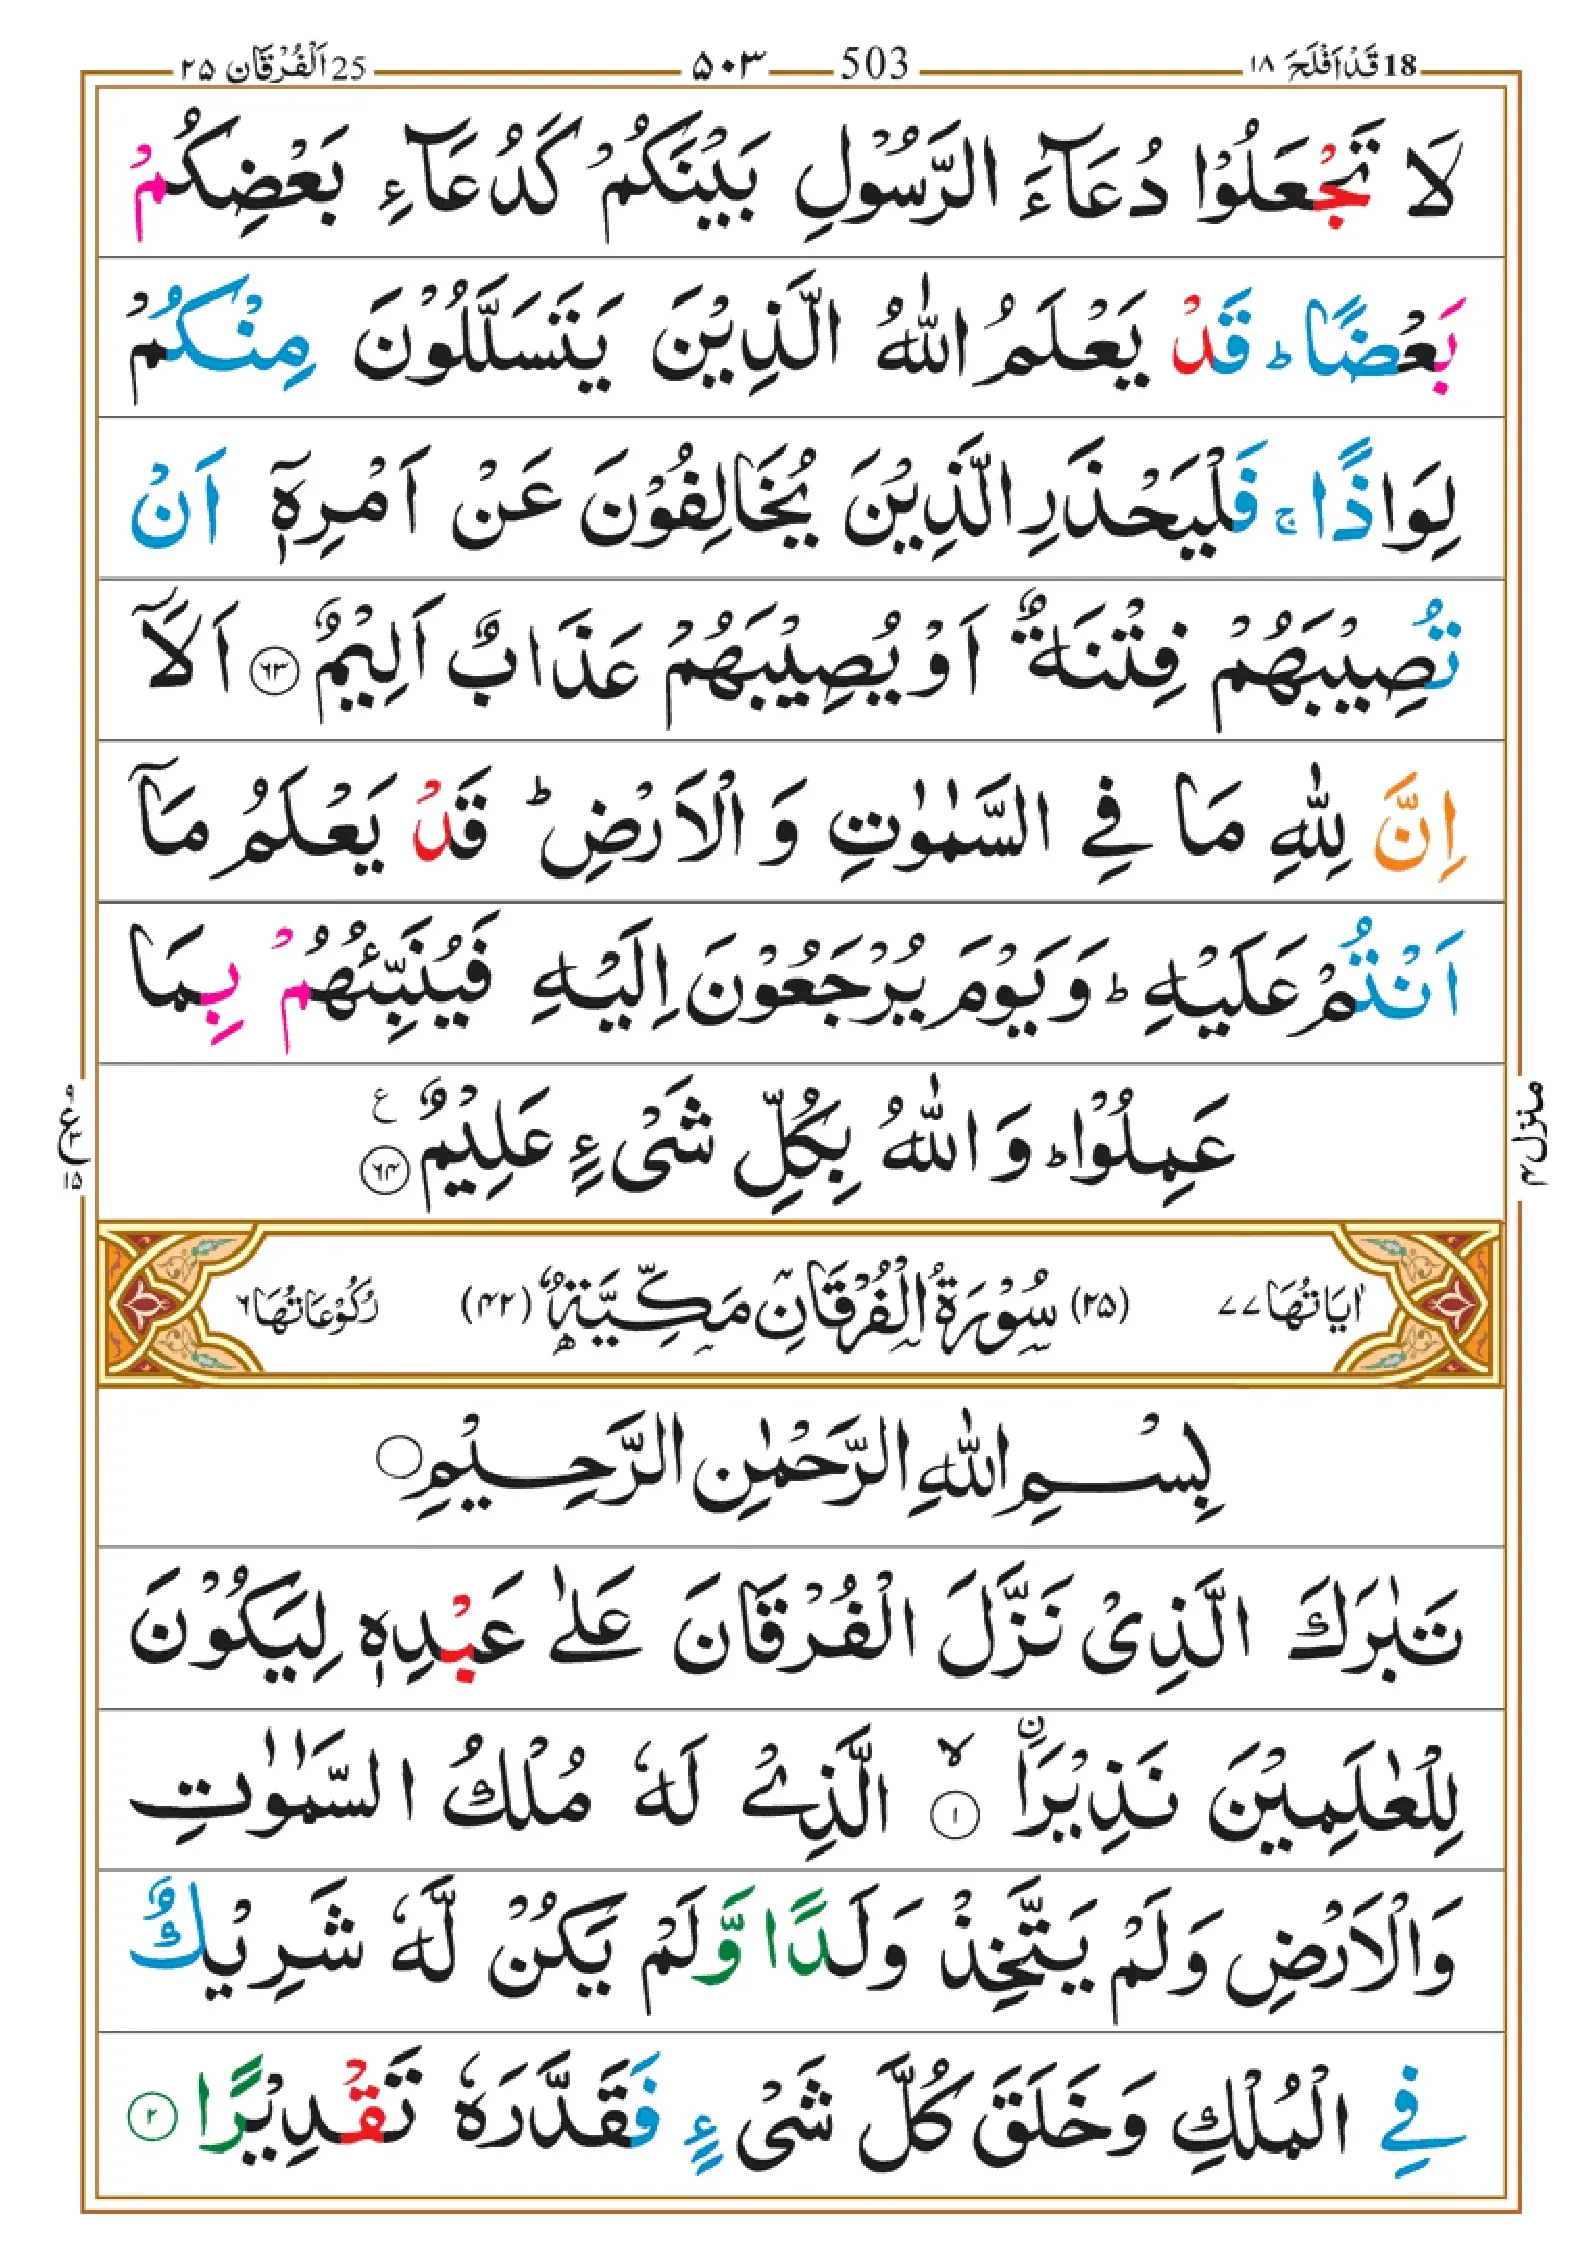 18 قَدْ اَفْلَحَ ١٨ 503 ۵۰۳ 25 اَلْفُرْقَان ٢۵
لَا تَجْعَلُوْا دُعَآءَ الرَّسُوْلِ بَيْنَكُمْ كَدُعَآءِ بَعْضِكُمْ
بَعْضًا ؕ قَدْ يَعْلَمُ اللّٰهُ الَّذِيْنَ يَتَسَلَّلُوْنَ مِنْكُمْ
لِوَاذًا ۚ فَلْيَحْذَرِ الَّذِيْنَ يُخَالِفُوْنَ عَنْ اَمْرِهٖۤ اَنْ
تُصِيْبَهُمْ فِتْنَةٌ اَوْ يُصِيْبَهُمْ عَذَابٌ اَلِيْمٌ ۶۳ اَلَاۤ
اِنَّ لِلّٰهِ مَا فِي السَّمٰوٰتِ وَ الْاَرْضِ ؕ قَدْ يَعْلَمُ مَاۤ
اَنْتُمْ عَلَيْهِ ؕ وَ يَوْمَ يُرْجَعُوْنَ اِلَيْهِ فَيُنَبِّئُهُمْ بِمَا
عَمِلُوْا ؕ وَ اللّٰهُ بِكُلِّ شَیْءٍ عَلِيْمٌ ۶۴ ع
منزل ۴
٩ ع ٣ ١۵
اٰيَاتُهَا ٧٧ (٢۵) سُوْرَةُ الْفُرْقَانِ مَكِّيَّةٌ (۴٢) رُكُوْعَاتُهَا ۶
بِسْمِ اللّٰهِ الرَّحْمٰنِ الرَّحِيْمِ
تَبٰرَكَ الَّذِیْ نَزَّلَ الْفُرْقَانَ عَلٰی عَبْدِهٖ لِيَكُوْنَ
لِلْعٰلَمِيْنَ نَذِيْرَا ۙ ١ الَّذِیْ لَهٗ مُلْكُ السَّمٰوٰتِ
وَالْاَرْضِ وَلَمْ يَتَّخِذْ وَلَدًا وَّلَمْ يَكُنْ لَّهٗ شَرِيْكٌ
فِي الْمُلْكِ وَخَلَقَ كُلَّ شَیْءٍ فَقَدَّرَهٗ تَقْدِيْرًا ٢